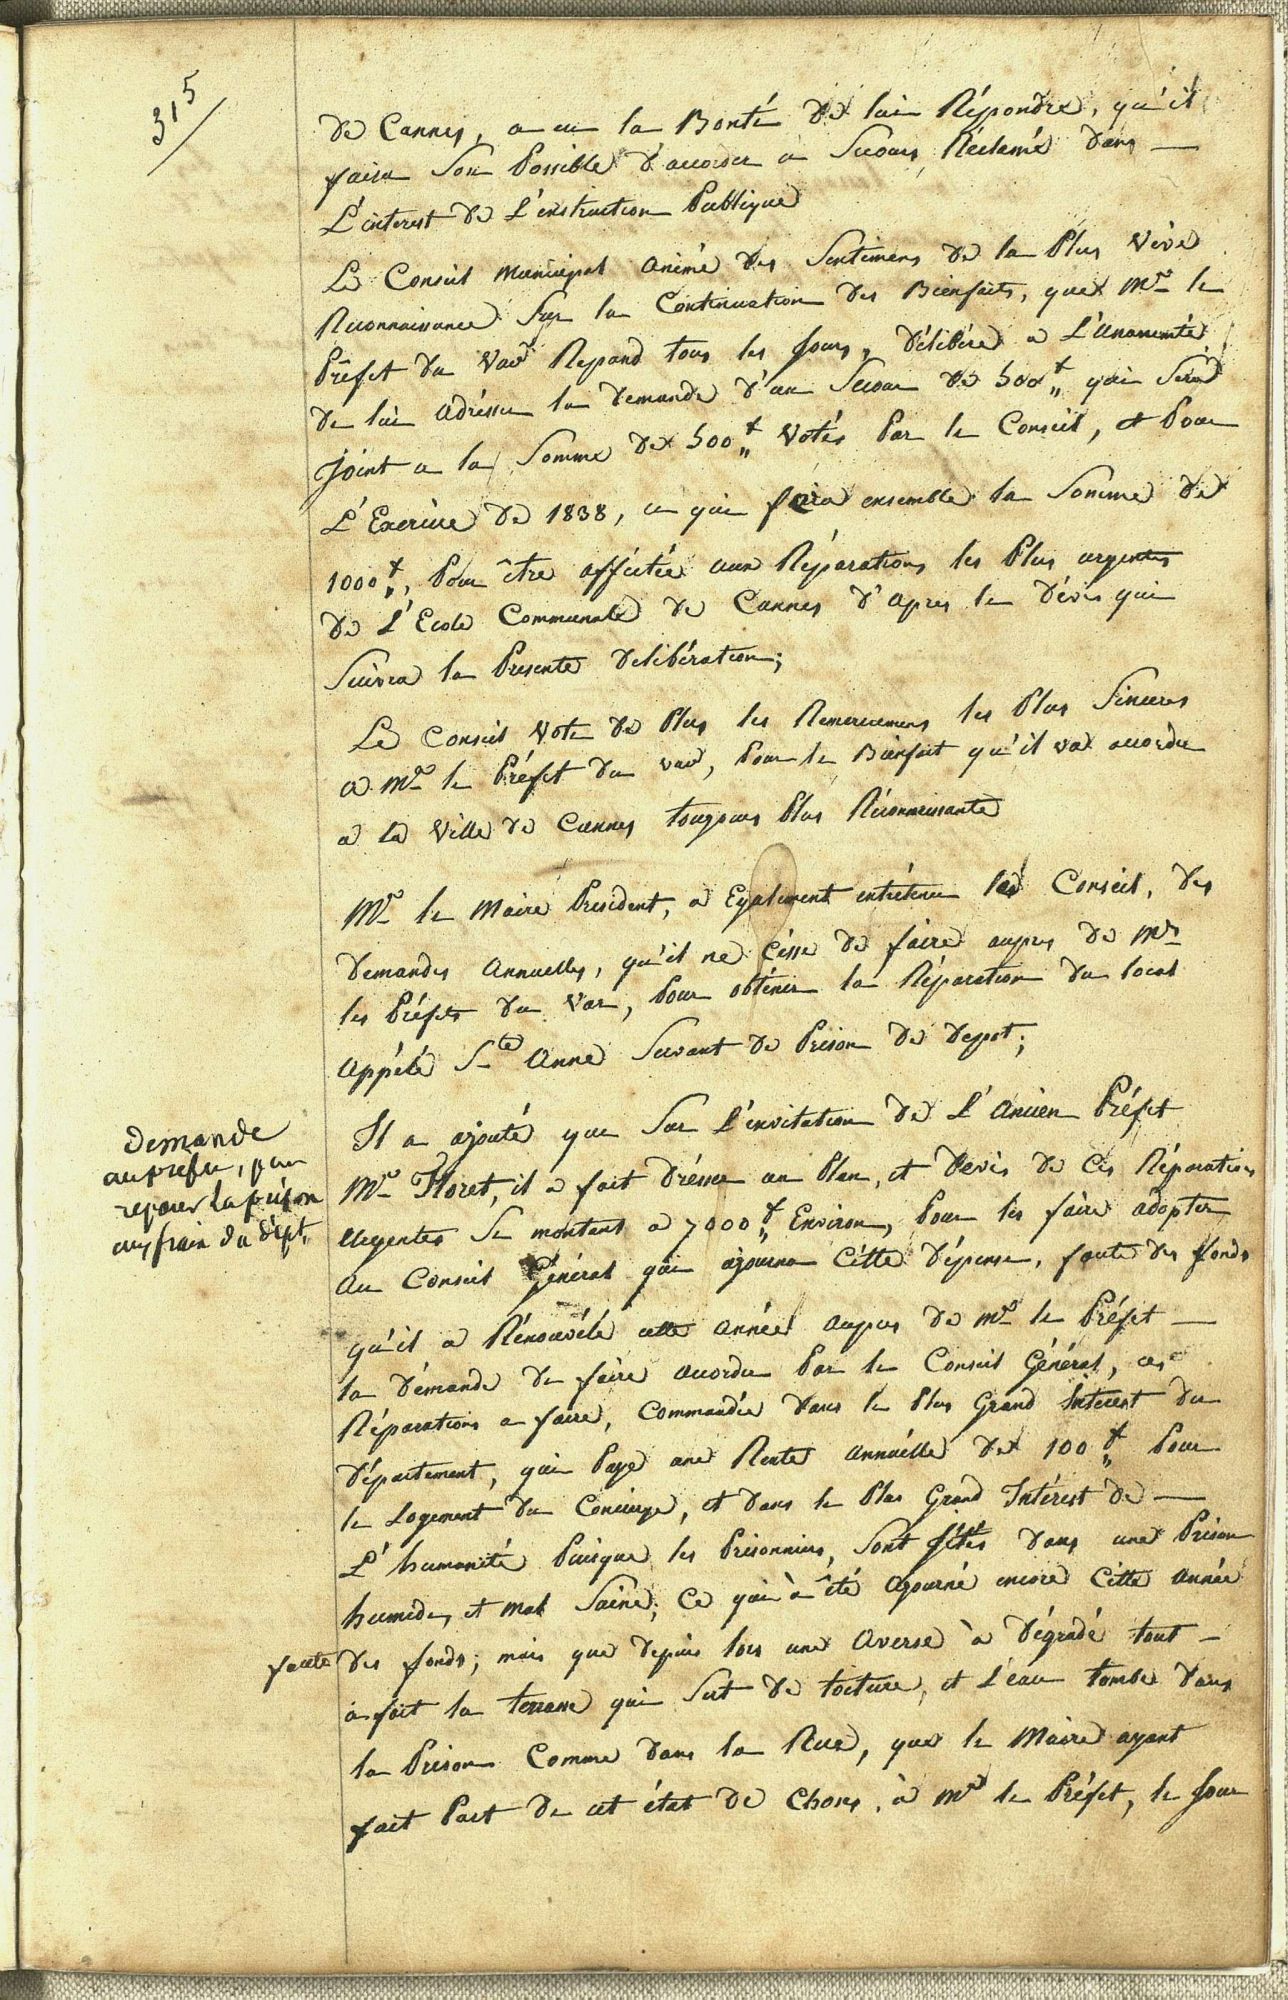 315
de Cannes, a eu la Bonté de lui Répondre, qu'il
faira Son Possible d'accorder ce Secours Réclamé dans
L'interest de L'instruction Publique
Le Conseil Municipal animé des Sentimens de la Plus Vive
Reconnaissance Sur la Continuation des Bienfaits, que Mr le
Préfet du Var Repand tous les Jours, délibére a L'Unanimité
de lui adrésser la demande d'un Secour de 500 f qui Sera
joint a la Somme de 500 f Votés Par le Conseil, et Pour
L'Exercice de 1838, ce qui faira ensemble la Somme de
1000 f, Pour être affectée aux Réparations les Plus urgentes
de L'Ecole Communale de Cannes d'apres le dévis qui
Suivra la Presente delibération;
Le Conseil Vote de Plus les Remerciemens les Plus Sinceres
a Mr le Préfet du var, Pour le Bienfait qu'il va accorder
a la Ville de Cannes toujours Plus Réconnaissante
Mr le Maire President, a Egalement entrétenu le Conseil, des
demandes Annuelles, qu'il ne césse de faire aupres de Mrs
les Préfets du Var, Pour obténir la Réparation du local
appélé Ste Anne Servant de Prison de depot;
Il a ajouté que Sur L'invitation de L'Ancien Préfet
Mr Floret, il a fait drésser un Plan, et devis de ces Réparations
Urgentes Se montant a 7000 f Environ, Pour les faire adopter
au Conseil Général qui ajourna Cétte dépense, faute des fonds
demande
au prefet, pour
reparer la prison
aux frais du dépt.
qu'il a Rénouvélé cette année aupres de Mr le Préfet
la démande de faire accorder Par le Conseil Général, ces
Réparations a faire, Commandée dans le Plus Grand Interest du
département, qui Paye une Rente annuélle de 100 f Pour
le Logement du Concierge, et dans le Plus Grand Intérest de
L'humanité Puisque les Prisonniers, Sont jétés dans une Prison
humide, et mal Saine; Ce qui à été ajourné encore Cétte année
faute des fonds; mais que depuis lors une Averse à dégradé tout
a fait la terrasse qui Sert de toiture, et L'eau tombe dans
la Prison Comme dans la Rue, que le Maire ayant
fait Part de cet état de Choses, à Mr le Préfet, le Jour